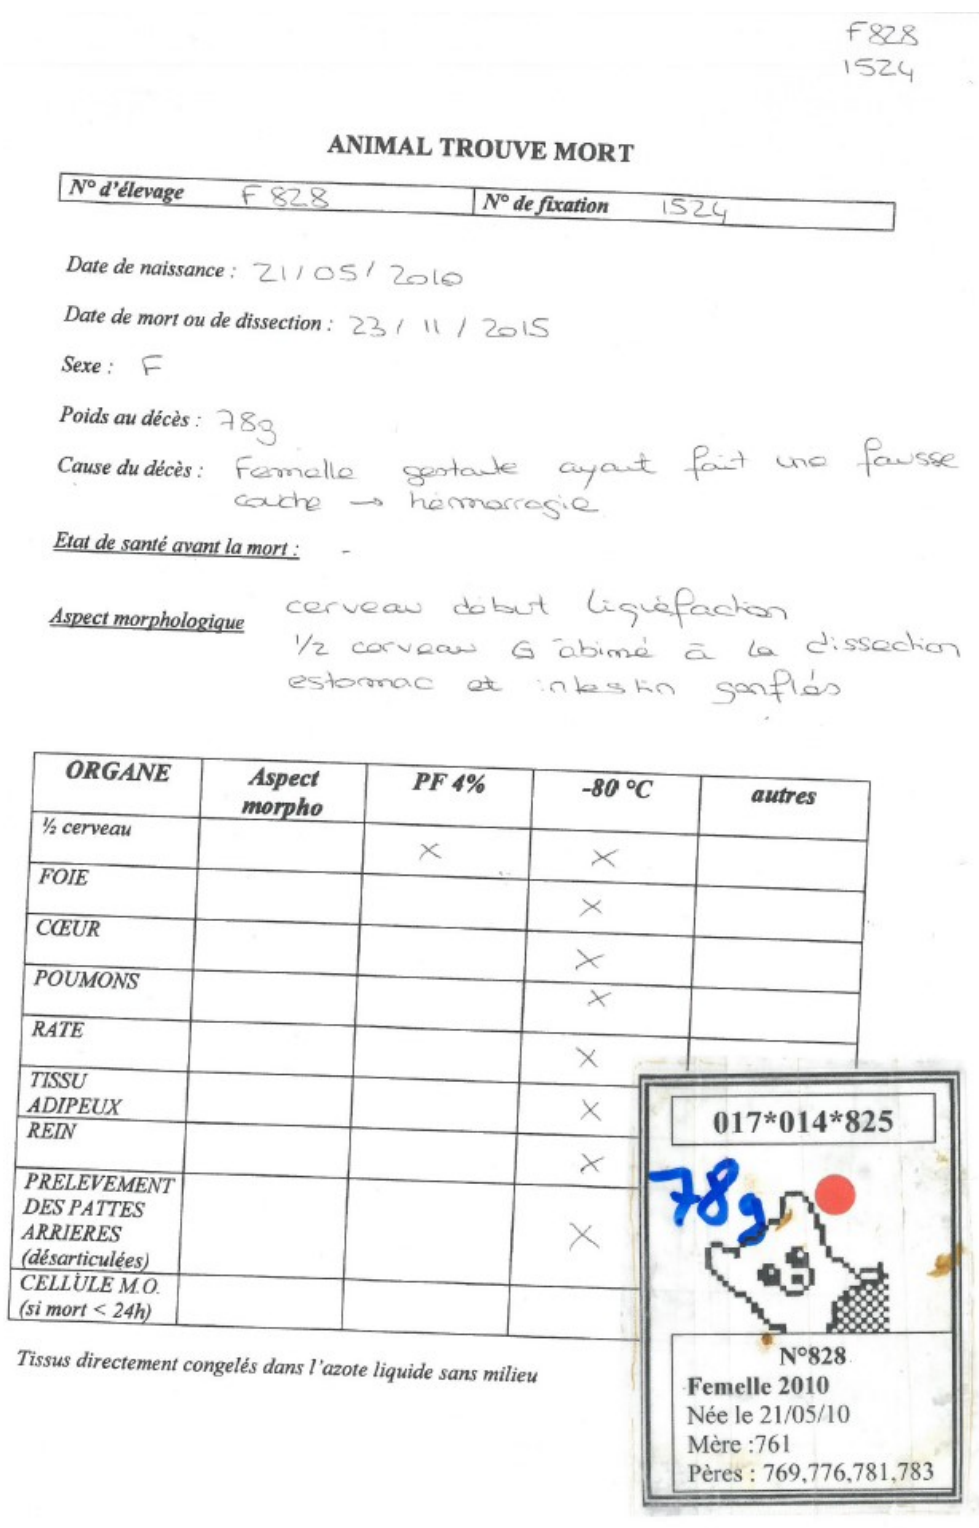 F828
1524
ANIMAL TROUVE MORT
N° d'élevage F828 N° de fixation 1524
Date de naissance : 21/05/2010
Date de mort ou de dissection : 23/11/2015
Sexe : F
Poids au décès : 78g
Cause du décès : Femelle gestante ayant fait une fausse
couche → hémorragie
Etat de santé avant la mort : -
Aspect morphologique cerveau début liquéfaction
1/2 cerveau G abimé à la dissection
estomac et intestin gonflés
ORGANE Aspect morpho PF 4% -80 °C autres
½ cerveau X X
FOIE X
CŒUR X
POUMONS X
RATE X
TISSU
ADIPEUX X
REIN X
PRELEVEMENT
DES PATTES
ARRIERES X
(désarticulées)
CELLULE M.O.
(si mort < 24h)
Tissus directement congelés dans l'azote liquide sans milieu
017*014*825
78g
N°828
Femelle 2010
Née le 21/05/10
Mère :761
Pères : 769,776,781,783